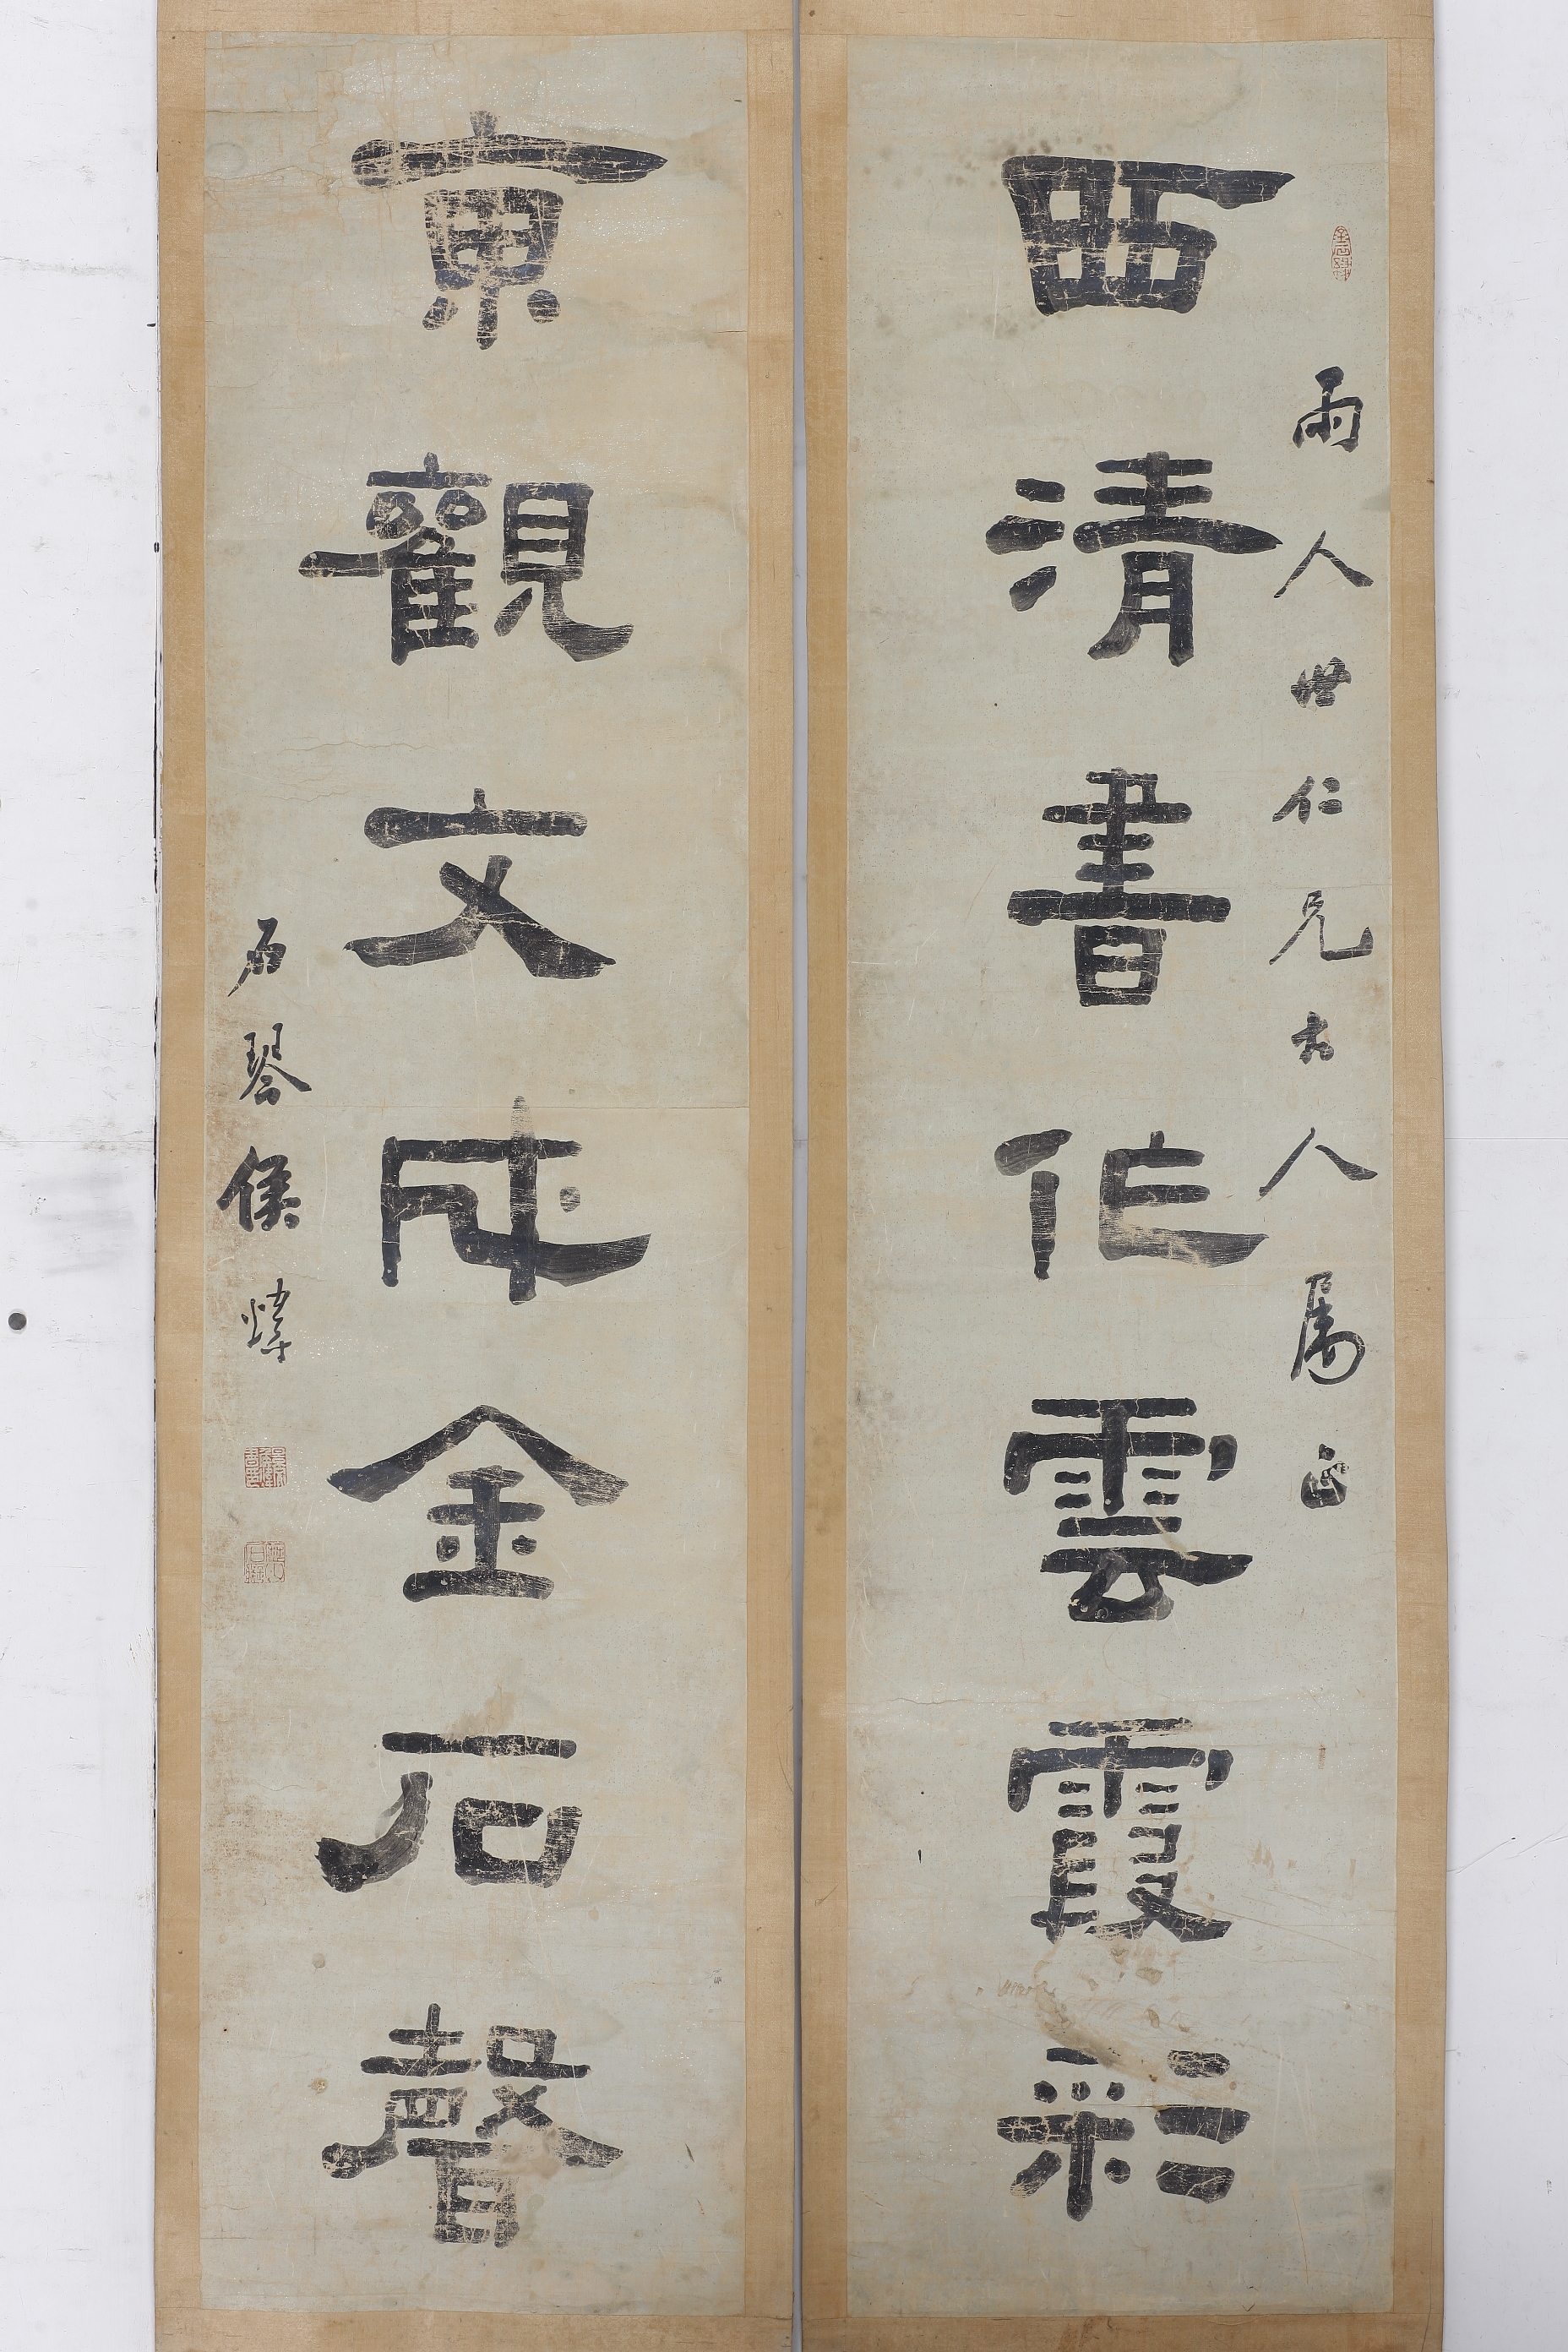 雨人世仁兄大人属正
西清書作雲霞彩
東觀文成金石聲
石琴侯㷆